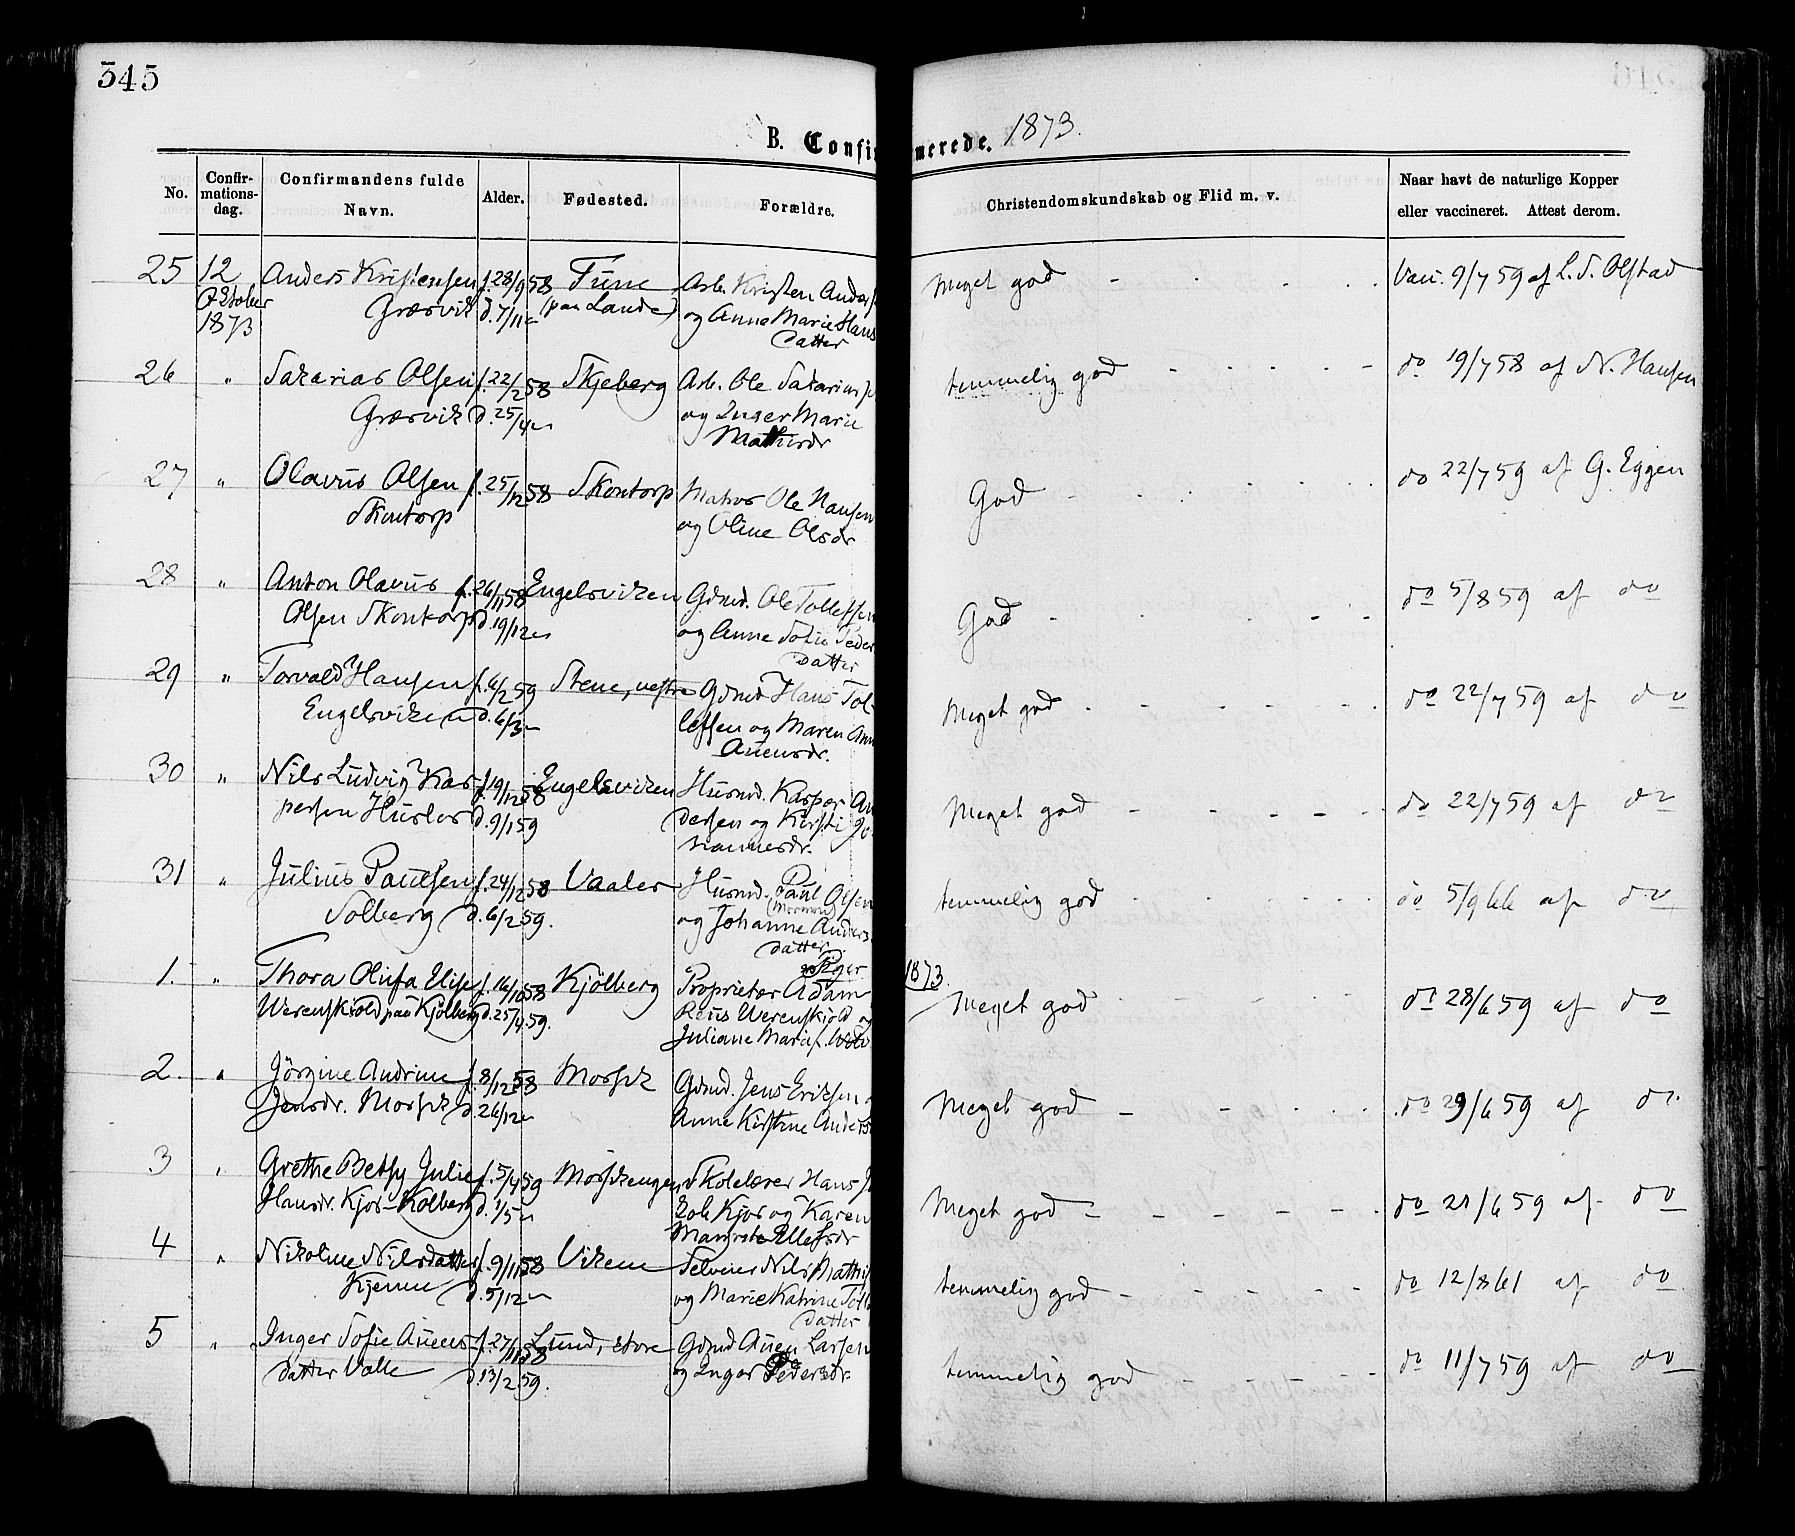 345
B. Confirmerede. 1873.
No. Confirmationsdag. Confirmandens fulde Navn. Alder. Fødested. Forældre. Christendomskundskab og Flid m. v. Naar havt de naturlige Kopper eller vaccineret. Attest derom.
25 12 Anders Kristensen f. 28/9 58 Tune Arb. Kristen Anders Meget god - Vac. 9/7 59 af L. S. Olstad
Oktober Græsvik d. 7/11 (paa Lande) og Anne Marie Hans
1873 datter
26 " Sakarias Olsen f. 22/2 58 Skjeberg Arb. Ole Sakarias temmelig god - do 19/7 58 af N. Hansen
Græsvik d. 25/4 og Inger Marie
Mathisdr
27 " Olavus Olsen f. 25/12 58 Skontorp Matros Ole Hansen God - do 22/7 59 af G. Eggen
Skontorp og Oline Olsdr
28 " Anton Olavus f. 26/11 58 Engelsviken Gdmd. Ole Tollefsen God - do 5/8 59 af do
Olsen Skontorp d. 19/12 og Anne Sofie Peder
datter
29 " Torvald Hansen f. 6/2 59 Stene, vestre Gdmd. Hans Tol- Meget god - do 22/7 59 af do
Engelsviken d. 6/3 lefsen og Maren Ann
Auensdr.
30 " Nils Ludvig Kas- f. 19/12 58 Engelsviken Husmd. Kasper An Meget god - do 22/7 59 af do
persen Huslos d. 9/1 59 dersen og Kirsti Jo
hannesdr.
31 " Julius Paulsen f. 24/12 58 Vaaler Husmd. Paul Olsen temmelig god do 5/9 66 af do
(Mormon)
Solberg d. 6/2 59. og Johanne Anders
datter
1. " Thora Olufa Elise f. 16/10 58 Kjölberg Proprietær Adam 1873. Meget god do 28/6 59 af do
Werenskiold paa Kjölberg d. 25/4 59. Werenskjold og
Juliane Marie f.
2. " Jörgine Andrine f. 8/12 58 Morfik Gdmd. Jens Eriksen Meget god - do 29/6 59 af do
Jensdr. d. 26/12 Anne Kirstine Anders
3 " Grethe Betsy Julie f. 5/4 59 Skolelærer Hans J Meget god - do 21/6 59 af do
Hansdr. Kjos-Kolberg d. 1/5 Kjos og Karen
Ellefsdr
4 " Nikoline Nilsdatter f. 9/11 58 Viken Selveier Nils Mathis temmelig god - do 12/8 61 af do
Kjenne d. 5/12 og Marie Katrine Toll
datter
5 " Inger Sofie Auens- f. 27/11 58 Lund, store Gdmd Auen Larsen temmelig god - do 11/7 59 af do
datter Valle d. 13/2 59. og Inger Pedersdr.